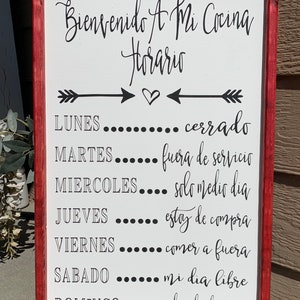 Bienvenido A Mi Cocina
Horario
LUNES............ cerrado
MARTES....... fuera de servicio
MIERCOLES..... solo medio dia
JUEVES ........ estoy de compra
VIERNES ....... comer a fuera
SABADO ........ mi dia libre